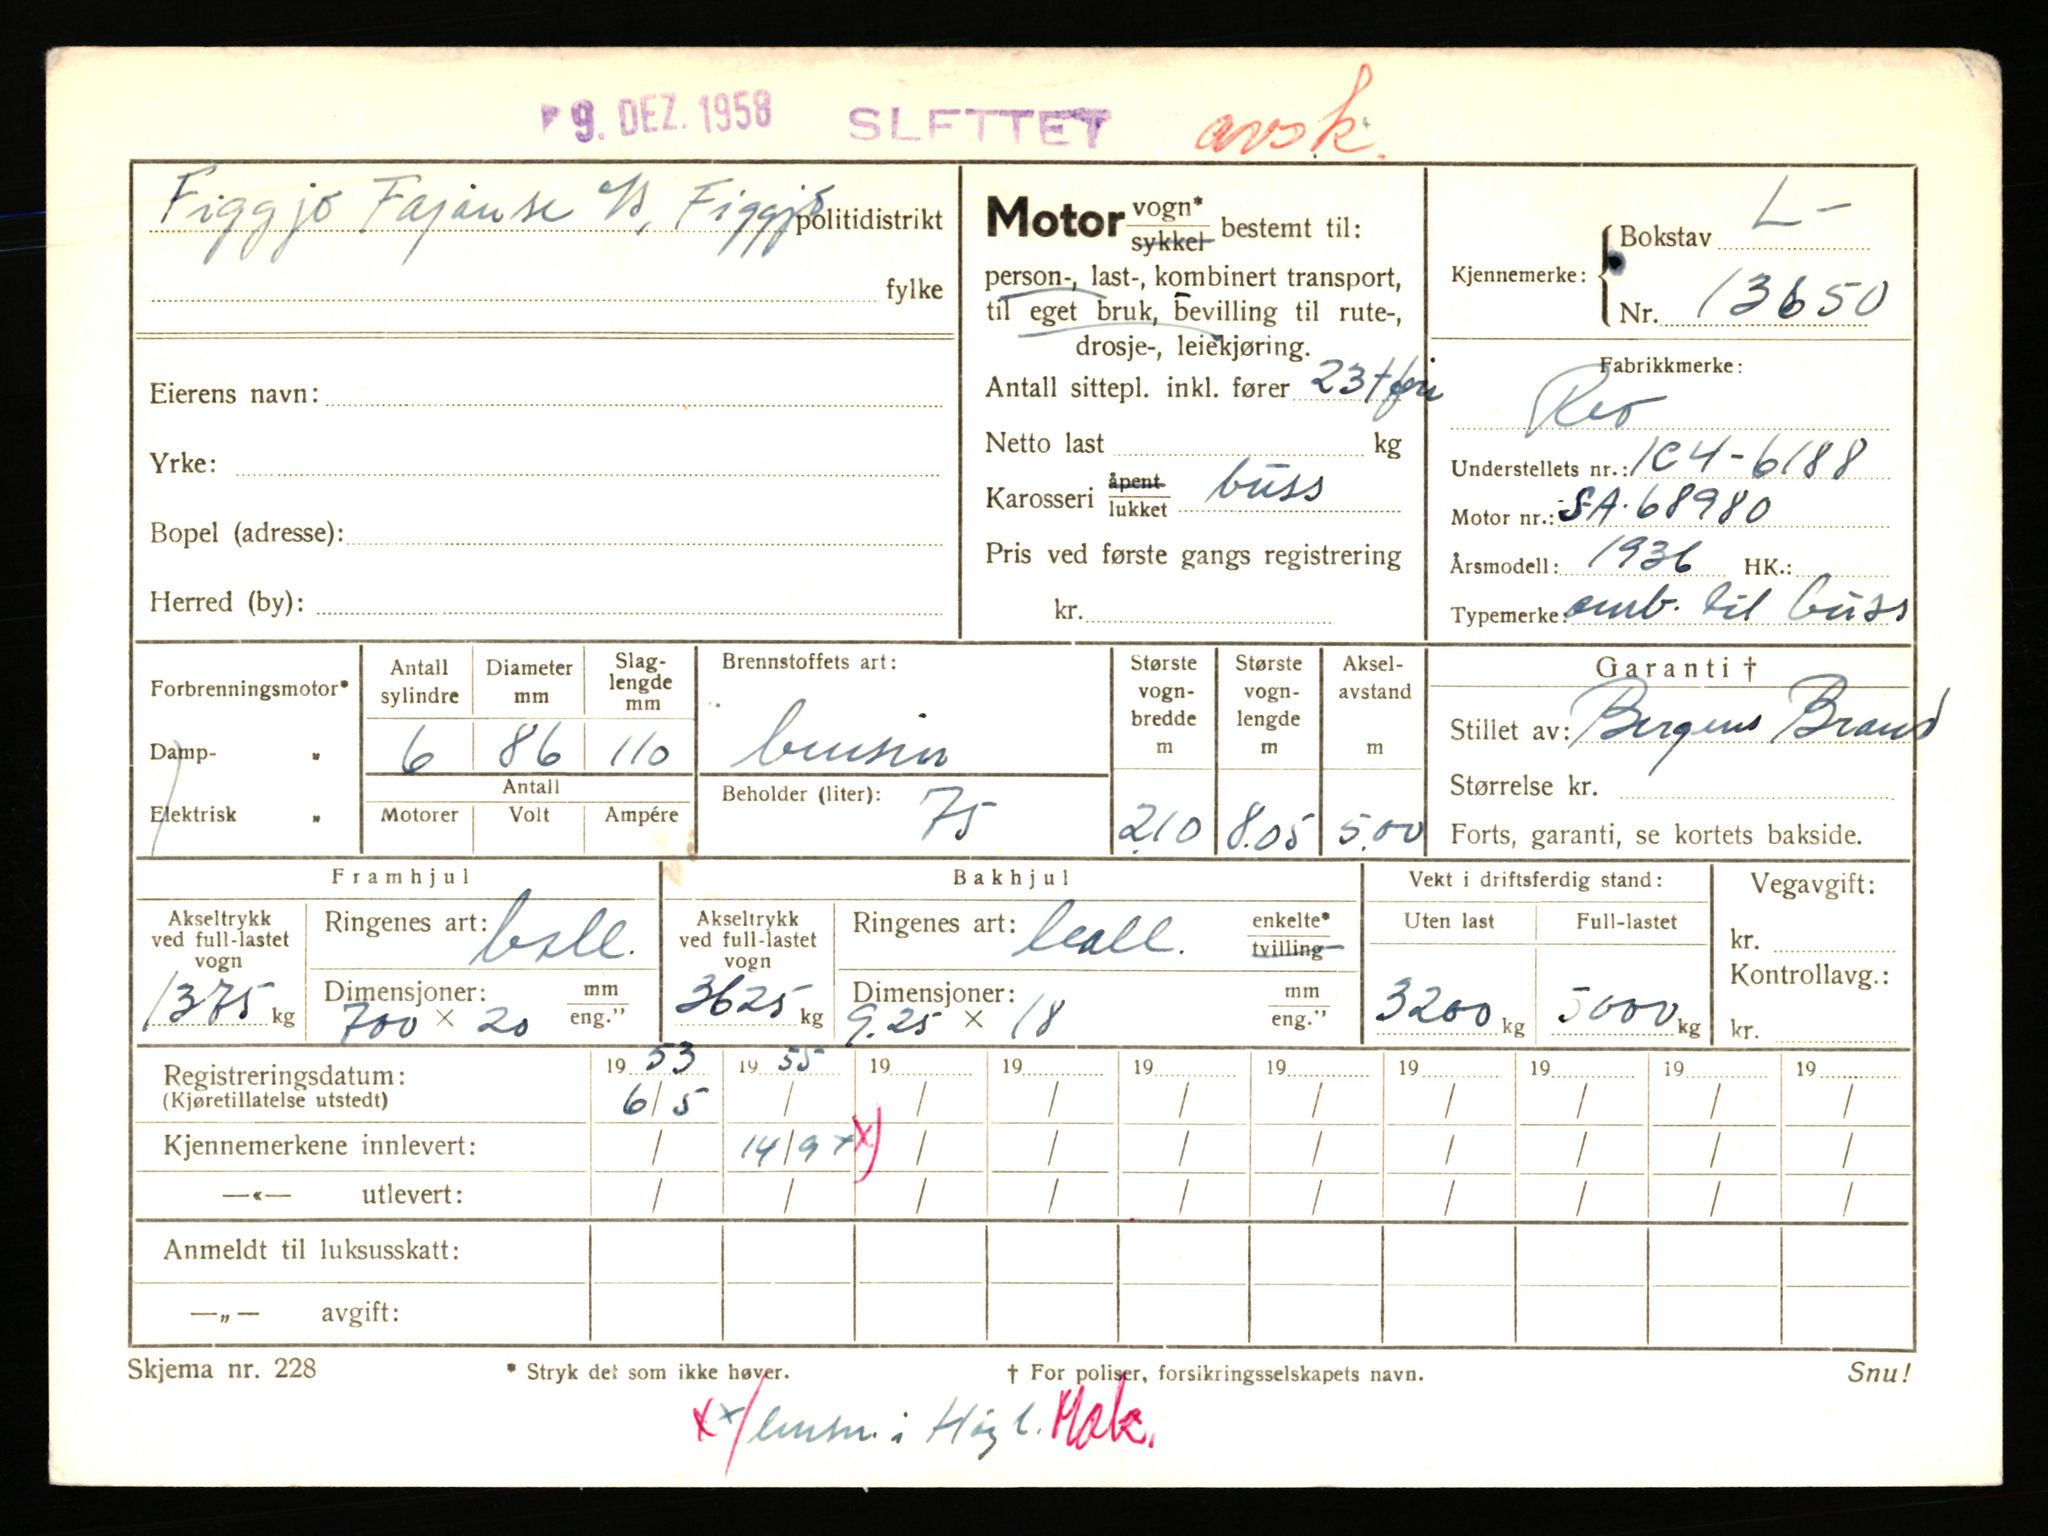 9. DEZ. 1958 SLETTET avsk.
Figgjo Fajanse A/S, Figgjo politidistrikt
fylke
Eierens navn:
Yrke:
Bopel (adresse):
Herred (by):
Motor vogn* sykkel bestemt til:
person-, last-, kombinert transport,
til eget bruk, bevilling til rute-,
drosje-, leiekjøring.
Antall sittepl. inkl. fører 23+
Netto last kg
Karosseri åpent lukket buss
Pris ved første gangs registrering
kr.
Kjennemerke: Bokstav L-
Nr. 13650
Fabrikkmerke:
Reo
Understellets nr.: 1C4-6188
Motor nr.: SA.68980
Årsmodell: 1936 HK.:
Typemerke: omb. til buss
Forbrenningsmotor*
Damp- "
Elektrisk "
Antall sylindre Diameter mm Slag-lengde mm
6 86 110
Antall
Motorer Volt Ampére
Brennstoffets art:
bensin
Beholder (liter): 75
Største vogn-bredde m
2.10
Største vogn-lengde m
8.05
Aksel-avstand m
5.00
Garanti †
Stillet av: Bergens Brand
Størrelse kr.
Forts, garanti, se kortets bakside.
Framhjul
Akseltrykk ved full-lastet vogn
1375 kg
Ringenes art: ball.
Dimensjoner: mm eng."
700 × 20
Bakhjul
Akseltrykk ved full-lastet vogn
3625 kg
Ringenes art: ball. enkelte* tvilling
Dimensjoner: mm eng."
9.25 × 18
Vekt i driftsferdig stand:
Uten last Full-lastet
3200 kg 5000 kg
Vegavgift:
kr.
Kontrollavg.:
kr.
Registreringsdatum: 19 53 19 55 19 19 19 19 19 19 19 19
(Kjøretillatelse utstedt) 6/5 / / / / / / / / /
Kjennemerkene innlevert: / 14/9 + x) / / / / / / / /
—«— utlevert: / / / / / / / / / /
Anmeldt til luksusskatt:
—„— avgift:
Skjema nr. 228 * Stryk det som ikke høver. † For poliser, forsikringsselskapets navn. Snu!
x x/ i